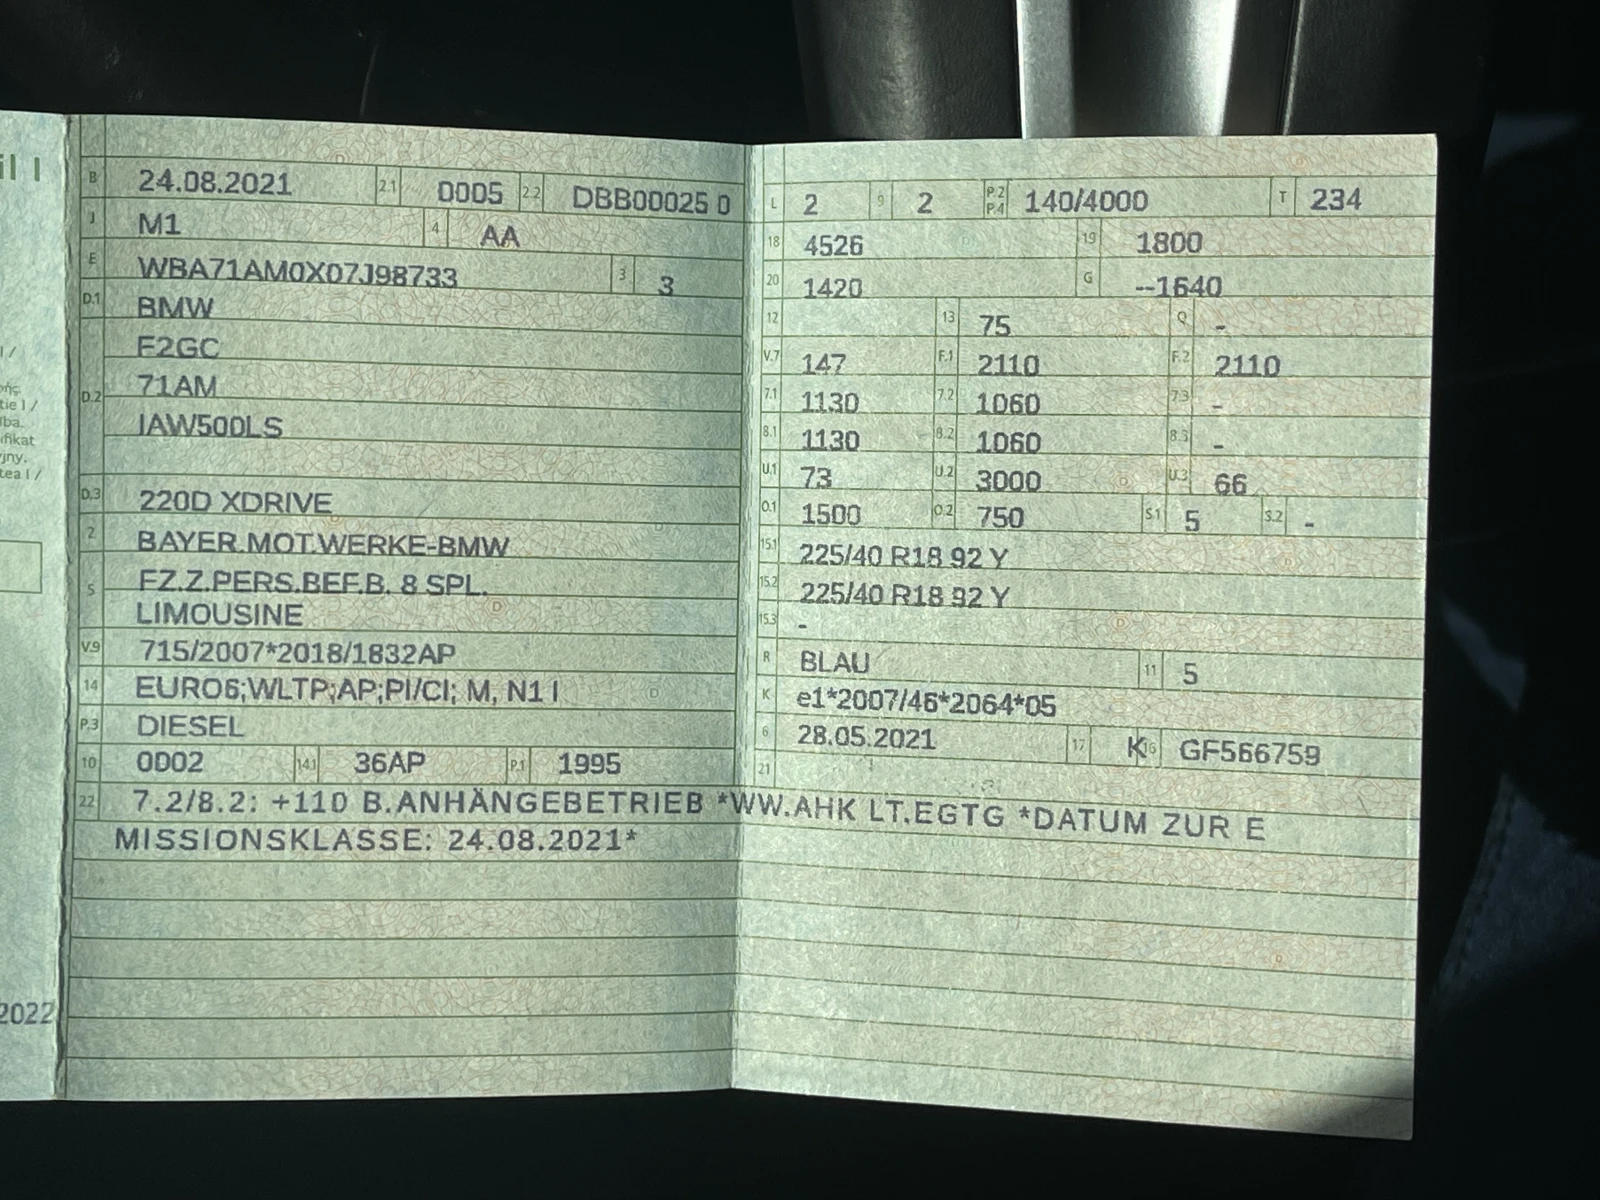 il I
B 24.08.2021 2.1 0005 2.2 DBB00025 0
J M1 4 AA
E WBA71AM0X07J98733 3 3
D.1 BMW
F2GC
D.2 71AM
IAW500LS
D.3 220D XDRIVE
2 BAYER.MOT.WERKE-BMW
5 FZ.Z.PERS.BEF.B. 8 SPL.
LIMOUSINE
V.9 715/2007*2018/1832AP
14 EURO6;WLTP;AP;PI/CI; M, N1 I
P.3 DIESEL
10 0002 14.1 36AP P.1 1995
L 2 9 2 P.2 P.4 140/4000 T 234
18 4526 19 1800
20 1420 G --1640
12 13 75 Q -
V.7 147 F.1 2110 F.2 2110
7.1 1130 7.2 1060 7.3 -
8.1 1130 8.2 1060 8.3 -
U.1 73 U.2 3000 U.3 66
O.1 1500 O.2 750 S.1 5 S.2 -
15.1 225/40 R18 92 Y
15.2 225/40 R18 92 Y
15.3 -
R BLAU 11 5
K e1*2007/46*2064*05
6 28.05.2021 17 K 16 GF566759
21
22 7.2/8.2: +110 B.ANHÄNGEBETRIEB *WW.AHK LT.EGTG *DATUM ZUR E
MISSIONSKLASSE: 24.08.2021*
2022